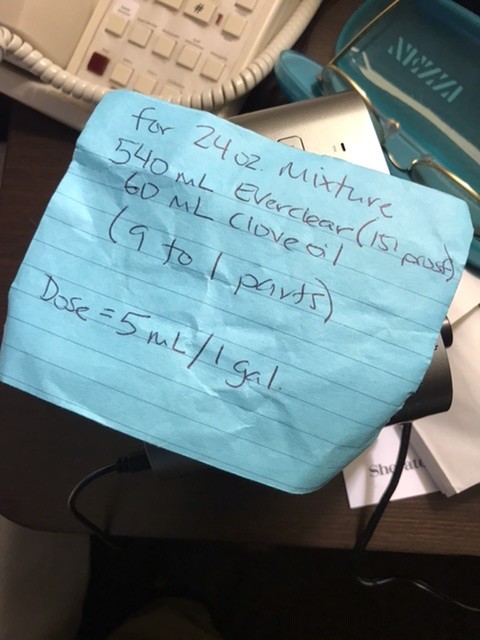 for 24 oz. Mixture
540 mL Everclear (151 proof)
60 mL Clove oil
(9 to 1 parts)
Dose = 5 mL / 1 gal.
#